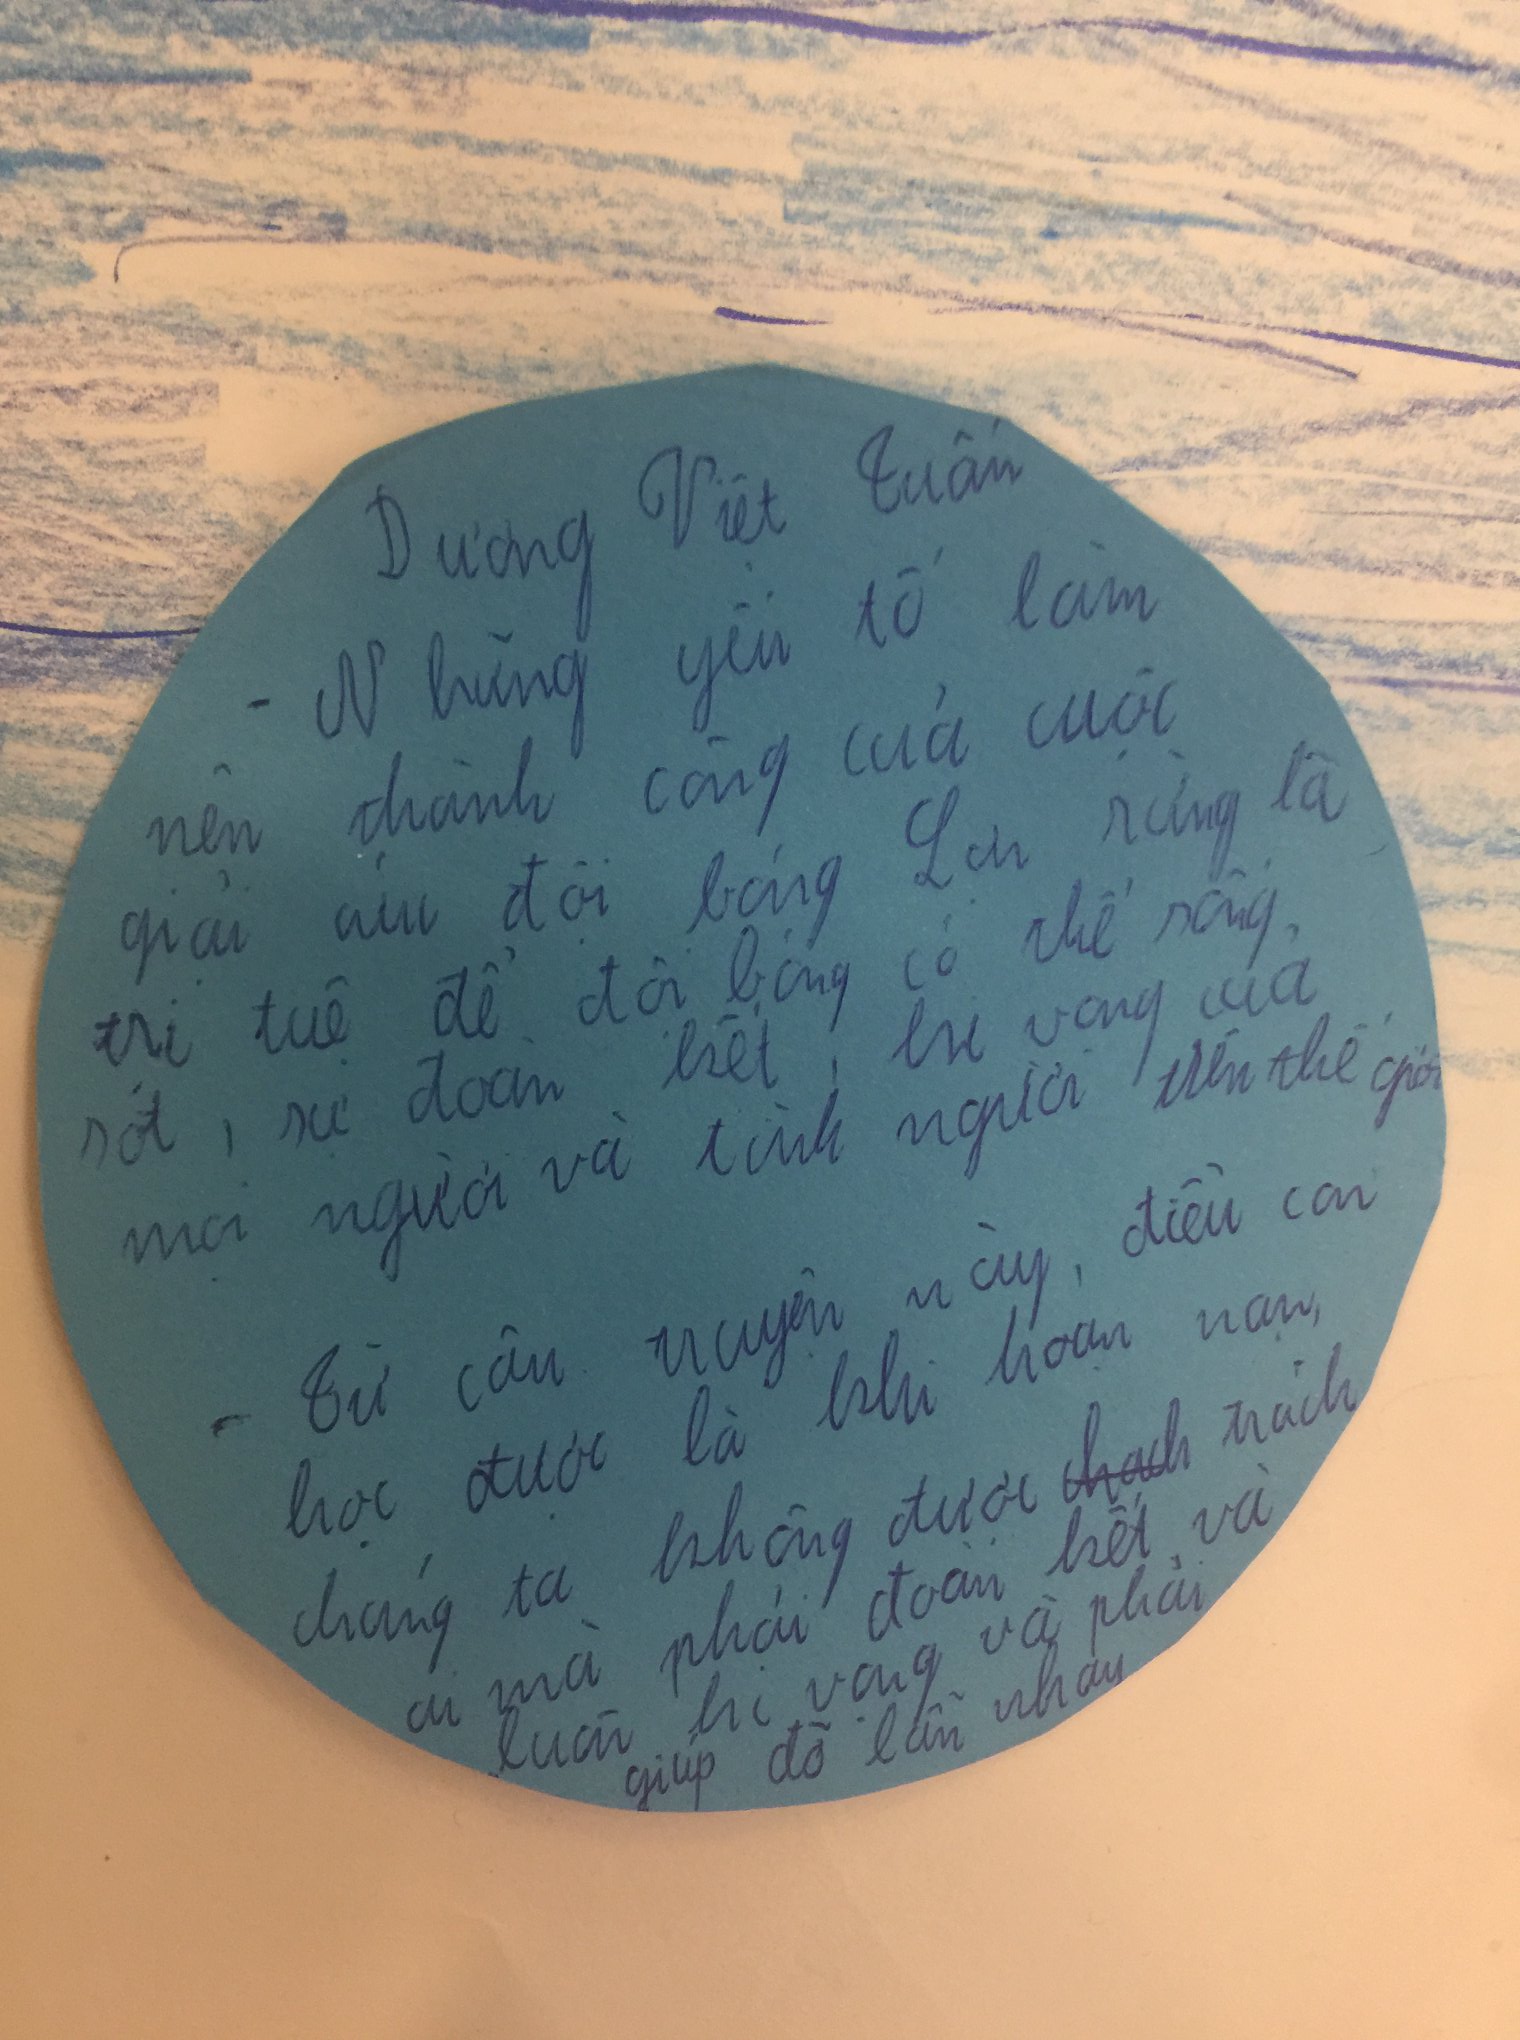 Dương Việt Tuấn
- Những yếu tố làm
nên thành công của cuộc
giải cứu đội bóng Lợn rừng là
trị tuệ để đội bóng có thể sống
sót, sự đoàn kết, hi vọng của
mọi người và tình người trên thế giới
- Từ câu truyện này, điều con
học được là khi hoạn nạn,
chúng ta không được trách
ai mà phải đoàn kết và
luôn hi vọng và phải
giúp đỡ lẫn nhau